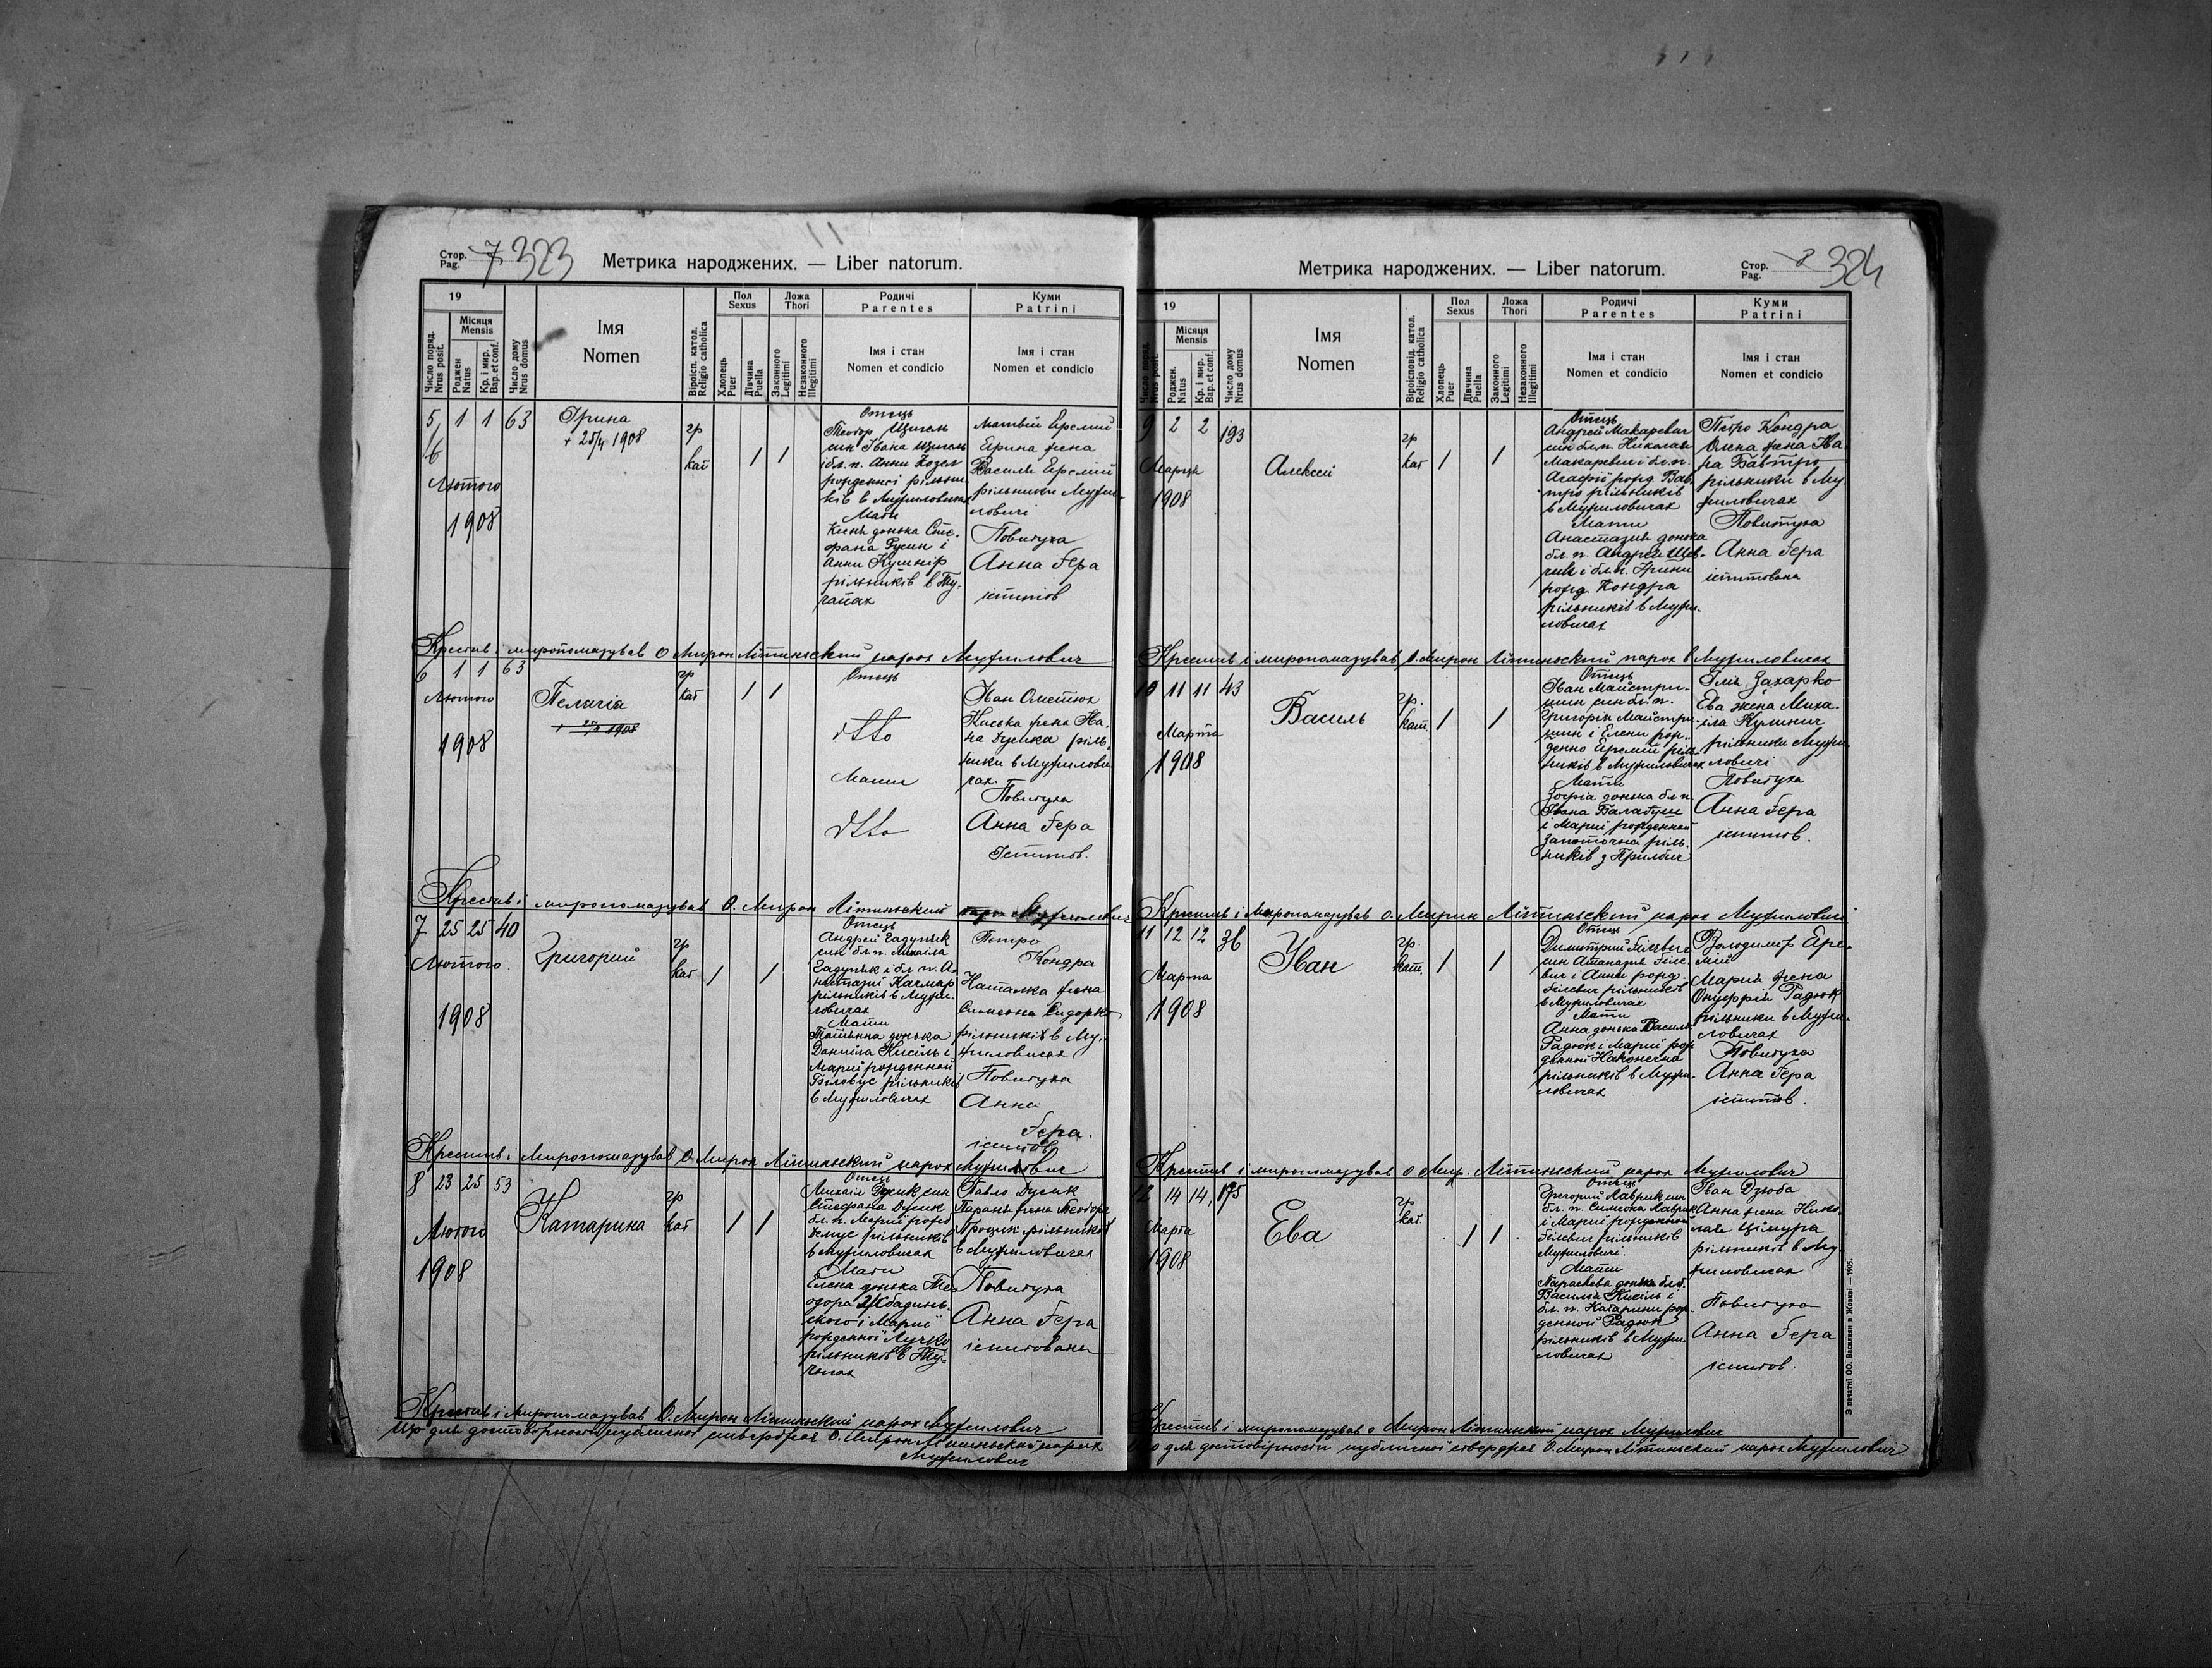 Стор. Pag. 7 323
Метрика народжених. — Liber natorum.
19
Число поряд. Nrus posit.
Місяця Mensis
Роджен Natus
Кр. і мир. Bap. et conf.
Число дому Nrus domus
Імя Nomen
Віроісп. катол. Religio catholica
Пол Sexus
Хлопець Puer
Дівчина Puella
Ложа Thori
Законного Legitimi
Незаконного Illegitimi
Родичі Parentes
Імя і стан Nomen et condicio
Куми Patrini
Імя і стан Nomen et condicio
5 1 1 63
Лютого
1908
Ірина
+ 25/4 1908
гр
кат
1 1
Отець
Теодор Щигель
син Івана Щигель
і бл. п. Анни Козел
рожденної рільни-
ків в Мужиловичах
Мати
Ксеня донька Сте-
фана Русин і
Анни Кушнір
рільників в Ту-
чапах
Матвій Еремій
Ерина жена
Василя Еремій
рільники Мужи-
ловичі
Повитуха
Анна Гера
іспитов
Крестив і миропомазував О Мирон Літинський парох Мужилович
6 1 1 63
Лютого
1908
Пелагія
гр
кат
1 1
Отець
ditto
Мати
ditto
Іван
Каська жена Ива-
на Дусика ріль-
ники в Мужилови
чах.
Повитуха
Анна Гера
Іспитов.
Крестив і миропомазував О. Мирон Літинський парох Мужилович
7 25 25 40
Лютого.
1908
Григорий
гр
кат
1 1
Отець
Андрей Гадупяк
син бл. п. Михаіла
Гадупяк і бл. п. А-
настазиї Качмар
рільників в Мужи-
ловичах
Мати
Татьянна донька
Данміла Кисіль і
Мариї рожденної
Біловус рільників
в Мужиловичах
Петро
Кондра
Наталка жена
Симеона Сидорко
рільників в Му-
жиловичах
Повитуха
Анна
Гера.
іспитов
Крестив і Миропомазував О. Мирон Літинський парох Мужилович
8 23 25 53
Лютого
1908
Катарина
гр
кат
1 1
Отець
Михаіл Дусик син
Стефана Дусик
бл. п. Мариї рожд
рільників
в Мужиловичах
Мати
Елена донька Те-
одора
ского і Мариї
рожденної Лучко
рільників в Ту-
чапах
Павло Дусик
Параня жена Теодора
Процик рільників
в Мужиловичах
Повитуха
Анна Гера
іспитована
Крестив і Миропомазував О. Мирон Літинський парох Мужилович
Що для достовірности публичної ствержая О. Мирон Літинський парох
Мужилович
Метрика народжених. — Liber natorum.
Стор. Pag. 8 324
19
Число поряд. Nrus posit.
Місяця Mensis
Роджен. Natus
Кр. і мир. Bap. et conf.
Число дому Nrus domus
Імя Nomen
Віроісповід. катол. Religio catholica
Пол Sexus
Хлопець Puer
Дівчина Puella
Ложа Thori
Законного Legitimi
Незаконного Illegitimi
Родичі Parentes
Імя і стан Nomen et condicio
Куми Patrini
Імя і стан Nomen et condicio
9 2 2 193
Марця
1908
Алексей
гр
кат
1 1
Отець
Андрей Макаревич
син бл. п. Николая
Макаревич і бл. п.
Агафиї рожд. Бав-
тро рільників
в Мужиловичах
Мати
Анастазия донька
бл. п. Андрея Шев-
чик і бл. п. Ірини
рожд. Кондра
рільників в Мужи-
ловичах
Петро Кондра
Олена жена Ива-
на Бавтро
рільники в Му
жиловичах
Повитуха
Анна Гера
іспитована
Крестив і миропомазував О. Мирон Літинський парох в Мужиловичах
10 11 11 43
Марта
1908
Василь
гр.
кат.
1 1
Отець
Іван Майстри-
шин син бл. п.
Григорія Майстри-
шин і Елени рож-
денно Еремій ріль-
ників в Мужиловичах
Мати
Зофія донька бл. п.
Івана Балабуш
і Мариї рожденної
Запоточна ріль-
ників з Прилбич
Ілія Захарко
Ева жена Миха-
іла Кушнир
рільники Мужи-
ловичі
Повитуха
Анна Гера
іспитов.
Крестив і Миропомазував О. Мирон Літинський парох Мужиловичі
11 12 12 36
Марта
1908
Іван
гр.
кат.
1 1
Отець
Димитрий Гілевич
син Атаназия Гіле-
вич і Анни рожд.
Гілевич рільників
в Мужиловичах
Мати
Анна донька Василя
Гадюк і Мариї рож
денної Наконечна
рільників в Мужи-
ловичах
Володимир Ере-
мій
Мария жена
Онуфрія Гадюк
рільники в Мужи-
ловичах
Повитуха
Анна Гера
іспитов.
Крестив і миропомазував О Мир. Літинський парох Мужилович
12 14 14 175
Марта
1908
Ева
гр
кат.
1 1
Отець
Григорий Лаврик син
бл. п. Симеона Лаврик
і Мариї рожденної
Гілевич рільників
Мужиловичі.
Мати
Параскева донька бл. п.
Василя Кисіль і
бл. п. Катарини рож-
денної Гадюк
рільників в Мужи-
ловичах
Іван Дзюба
Анна жена Нико-
лая Ціцура
рільників в Му
жиловичах
Повитуха
Анна Гера
іспитов.
Крестив і миропомазував О Мирон Літинський парох Мужилович
Що для достовірности публичної ствержая О. Мирон Літинський парох Мужилович
З печатні ОО. Василиян в Жовкві — 1905.